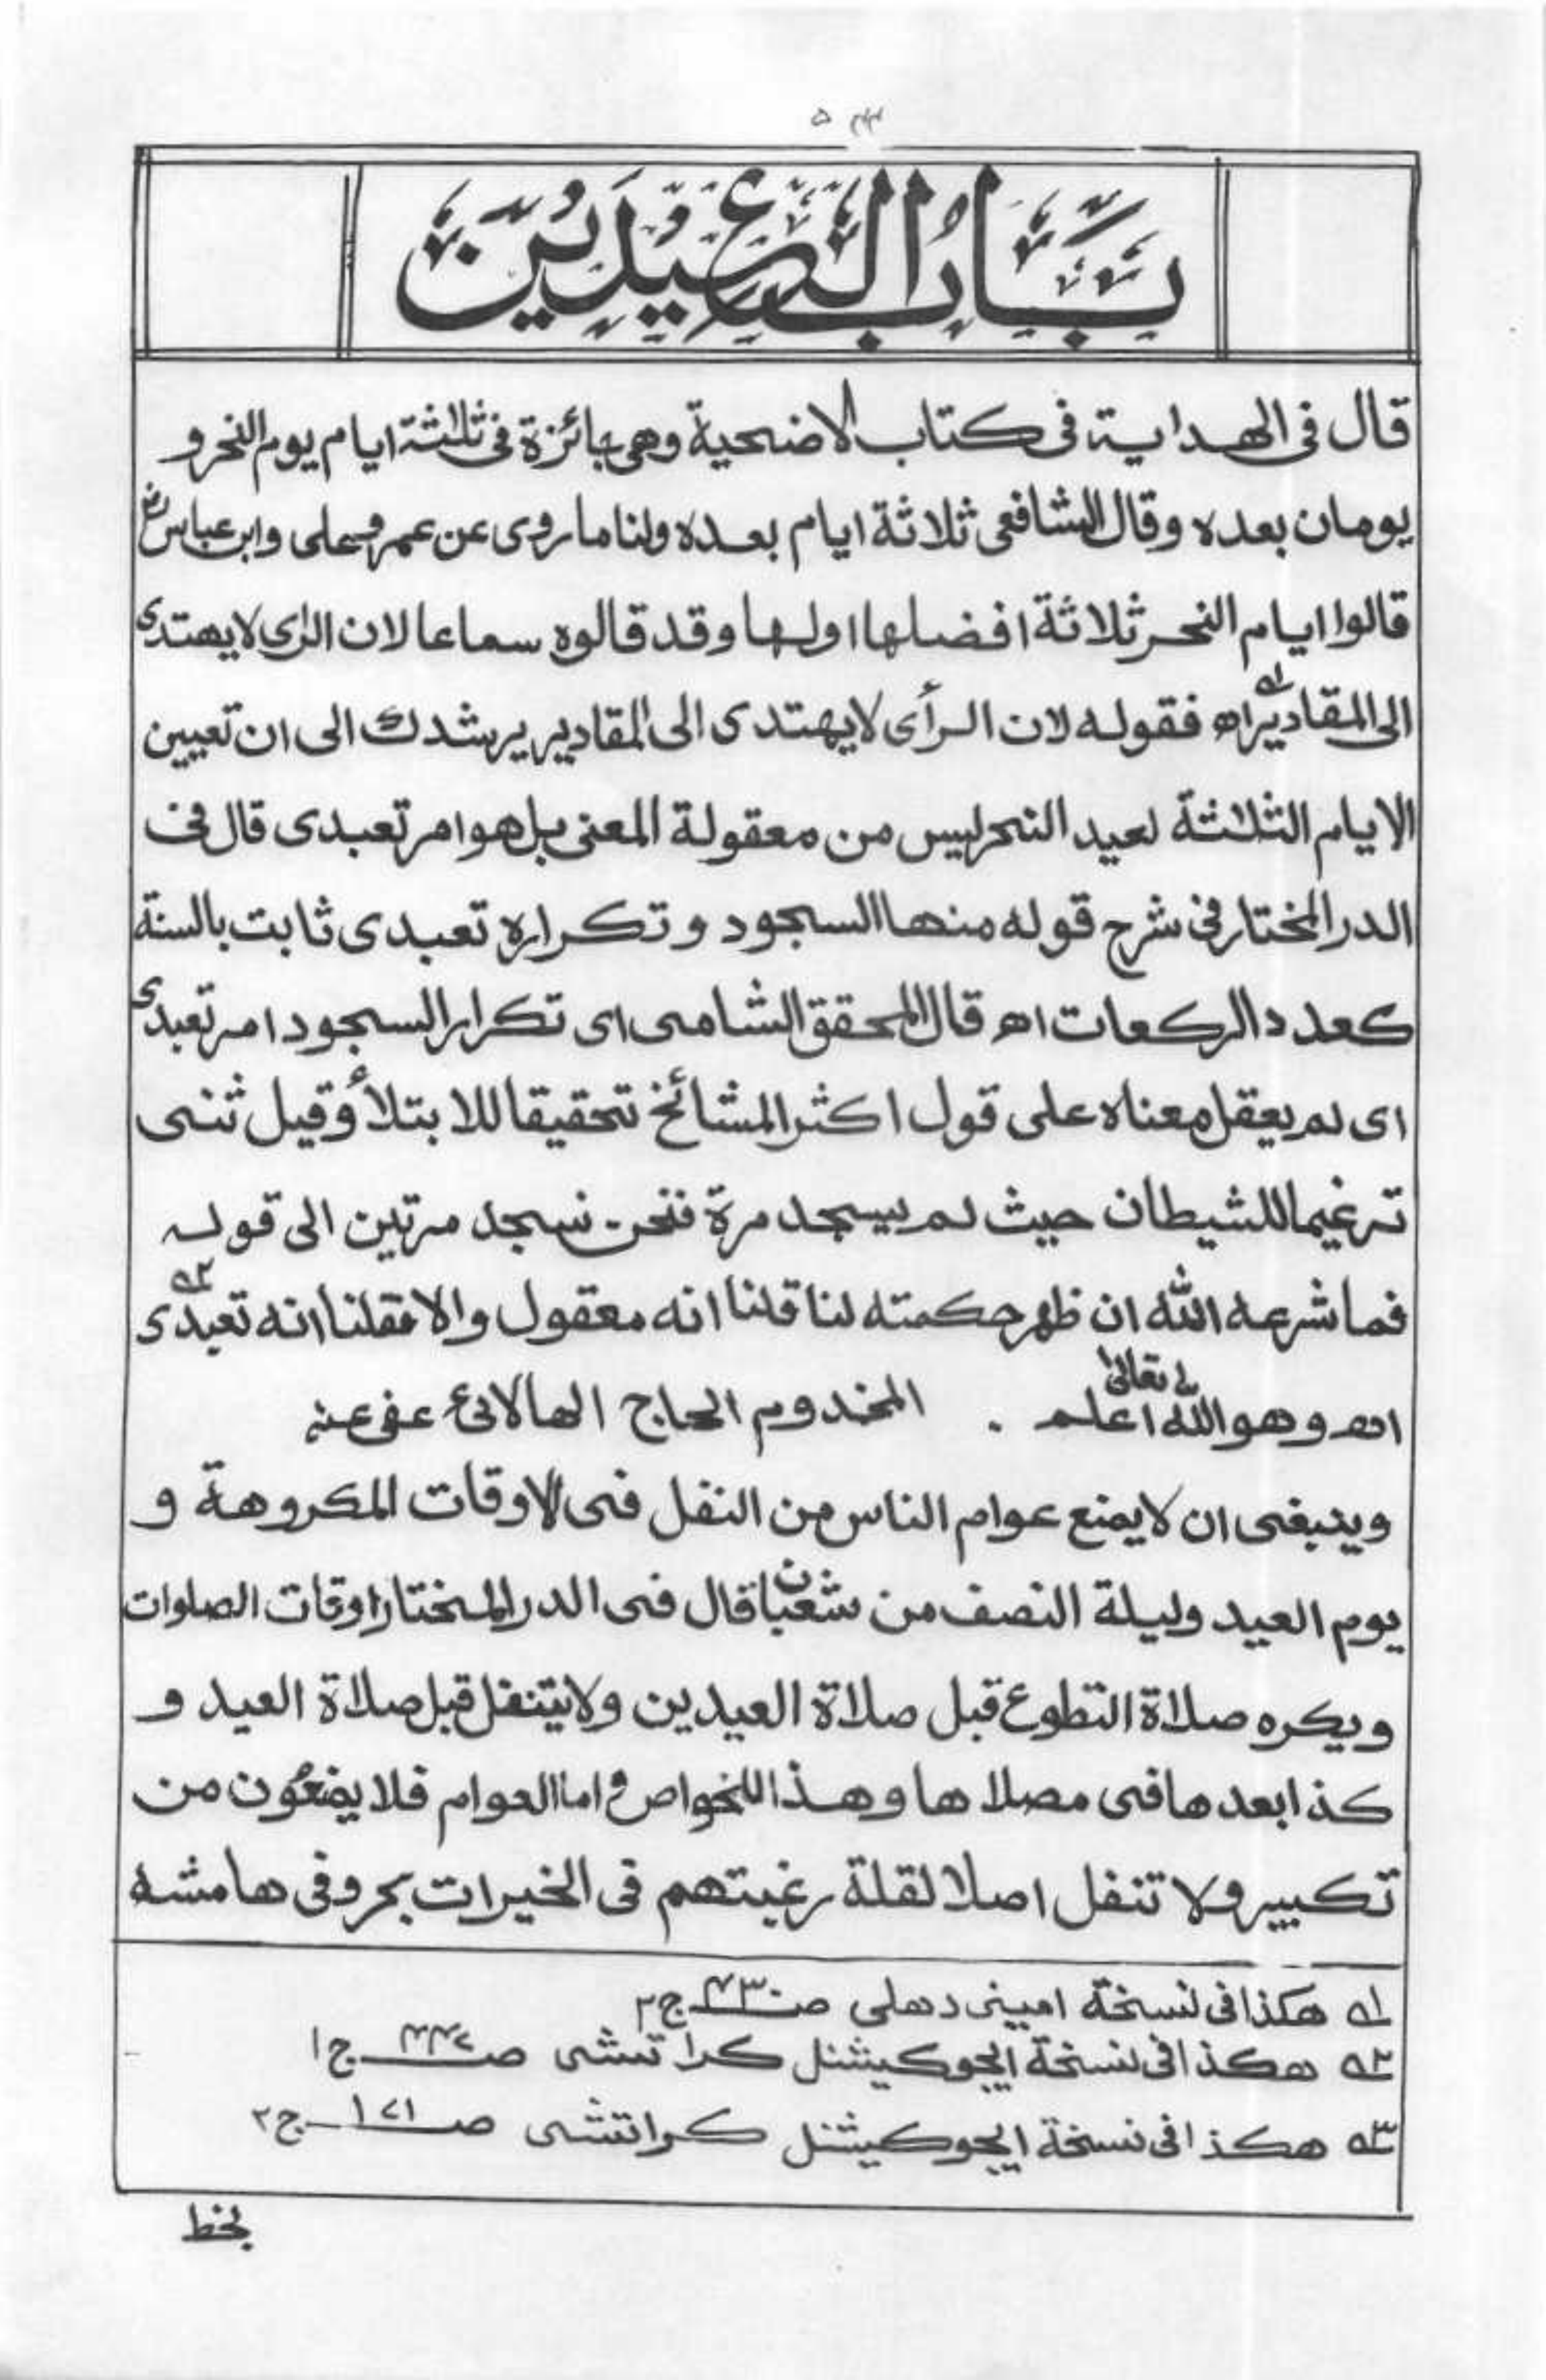 باب العيدين
قال فى الهداية فى كتاب الاضحية وهى جائزة فى ثلثة ايام يوم النحر و
يومان بعده وقال الشافعى ثلاثة ايام بعده ولنا ماروى عن عمر وعلى وابن عباس رض
قالوا ايام النحر ثلاثة افضلها اولها وقد قالوه سماعا لان الراى لا يهتدى
الى المقادير اه فقوله لان الرأى لا يهتدى الى المقادير يرشدك الى ان تعيين
الايام الثلثة لعيد النحر ليس من معقولة المعنى بل هو امر تعبدى قال فى
الدر المختار فى شرح قوله منها السجود وتكراره تعبدى ثابت بالسنة
كعدد الركعات اه قال المحقق الشامى اى تكرار السجود امر تعبدى
اى لم يعقل معناه على قول اكثر المشائخ تحقيقا للابتلأ وقيل ثنى
ترغيما للشيطان حيث لم يسجد مرة فنحن نسجد مرتين الى قوله
فما شرعه الله ان ظهر حكمته لنا قلنا انه معقول والا فقلنا انه تعبدى
اه وهو الله تعالى اعلم . المخدوم الحاج الهالائى عفى عنه
وينبغى ان لا يمنع عوام الناس من النفل فى الاوقات المكروهة و
يوم العيد وليلة النصف من شعبان قال فى الدر المختار اوقات الصلوات
ويكره صلاة التطوع قبل صلاة العيدين ولا يتنفل قبل صلاة العيد و
كذا بعدها فى مصلاها وهذا للخواص و اما العوام فلا يمنعون من
تكبير ولا تنفل اصلا لقلة رغبتهم فى الخيرات بحر وفى هامشه
١ه هكذا فى نسخة امينى دهلى ج٢
٢ه هكذا فى نسخة ايجوكيشنل كراتشى ج١
٣ه هكذا فى نسخة ايجوكيشنل كراتشى صـ١٧١ ج٢
بخط